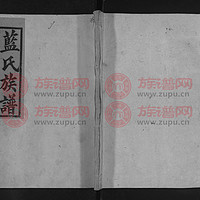 藍氏族譜
族谱网
www.zupu.cn
族谱网
www.zupu.cn
族谱网
www.zupu.cn
族谱网
www.zupu.cn